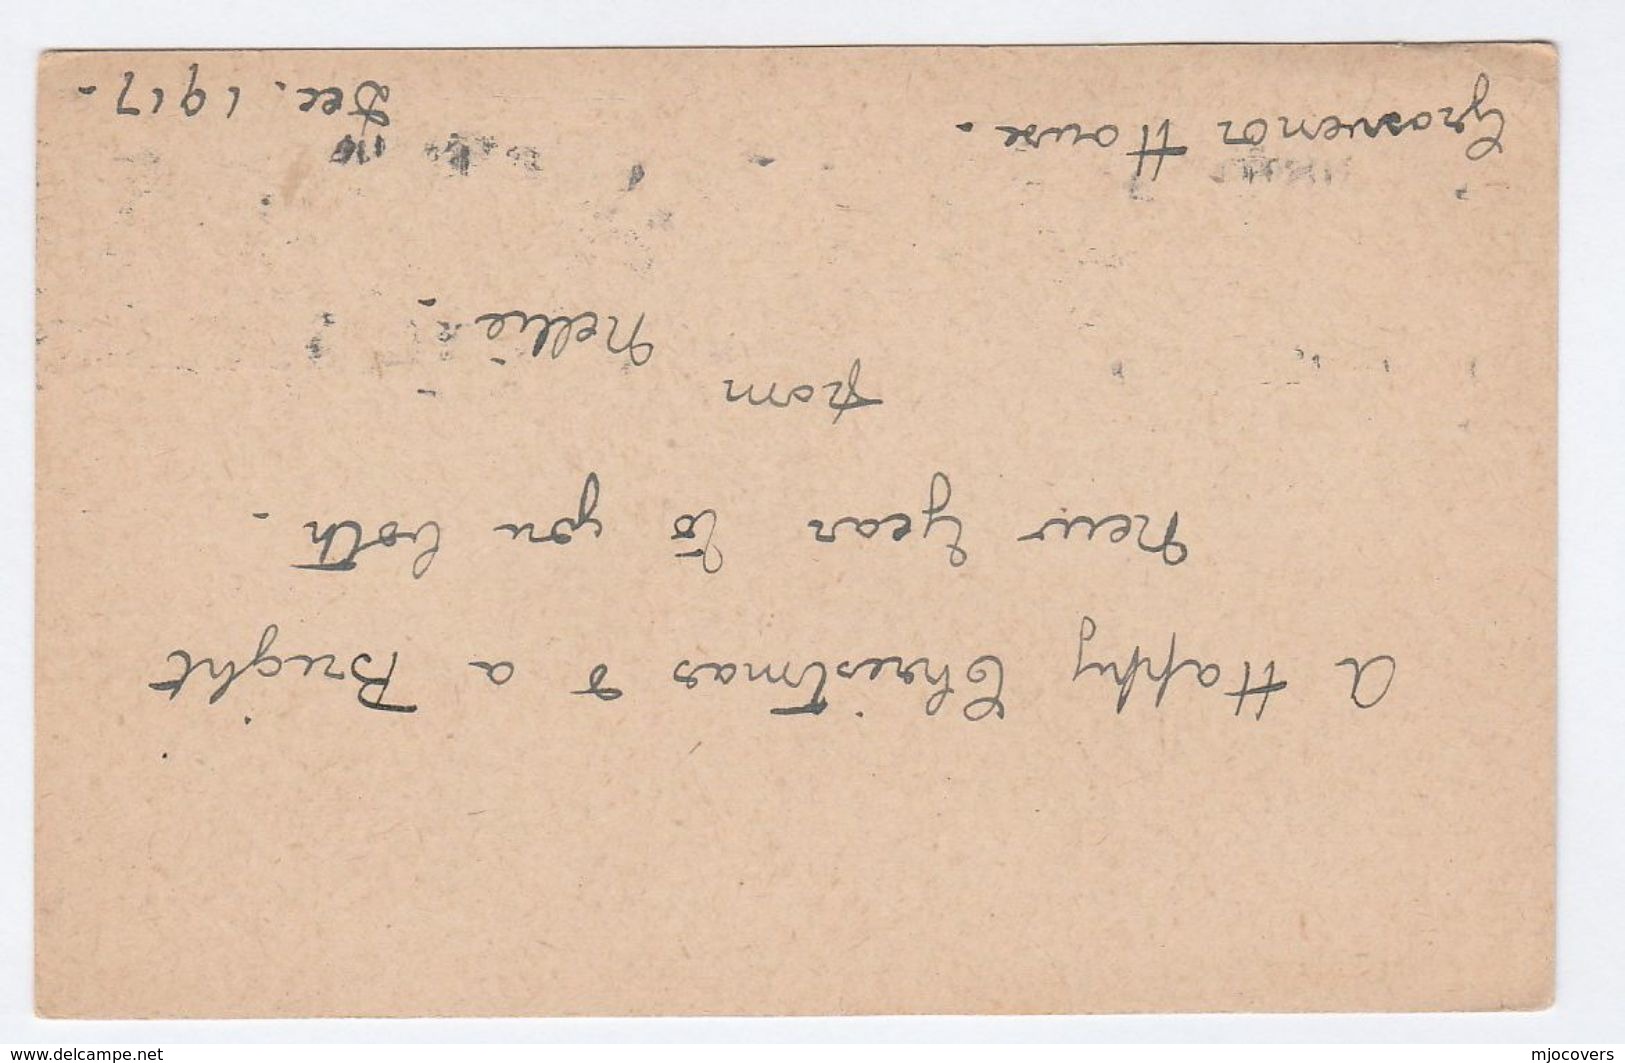 A Happy Christmas & a Bright
New Year to you both.
from
Nellie.
Grosvenor House.
Dec. 1917.
www.delcampe.net
mjocovers